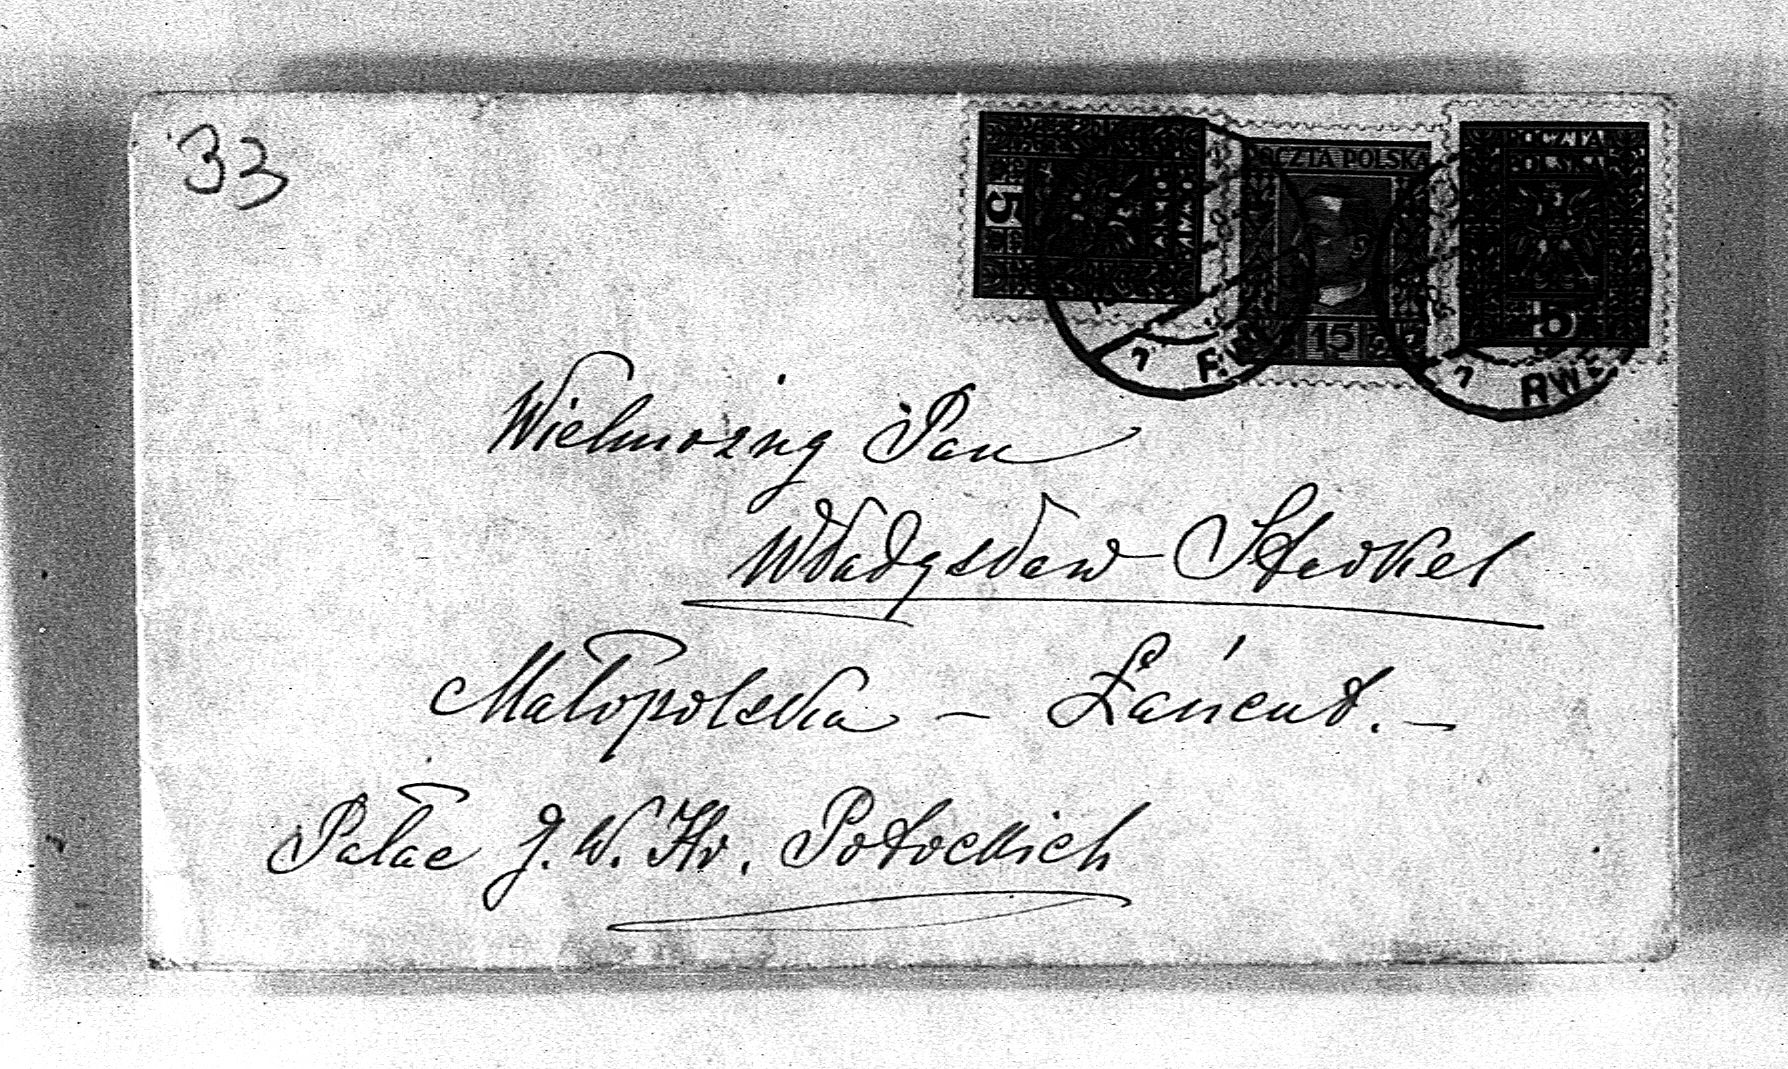 33
5
POCZTA POLSKA
15
POCZTA
POLSKA
5
RWE
Wielmożny Pan
Władysław
Małopolska – Łańcut. –
Pałac J. W. Hr. Potockich